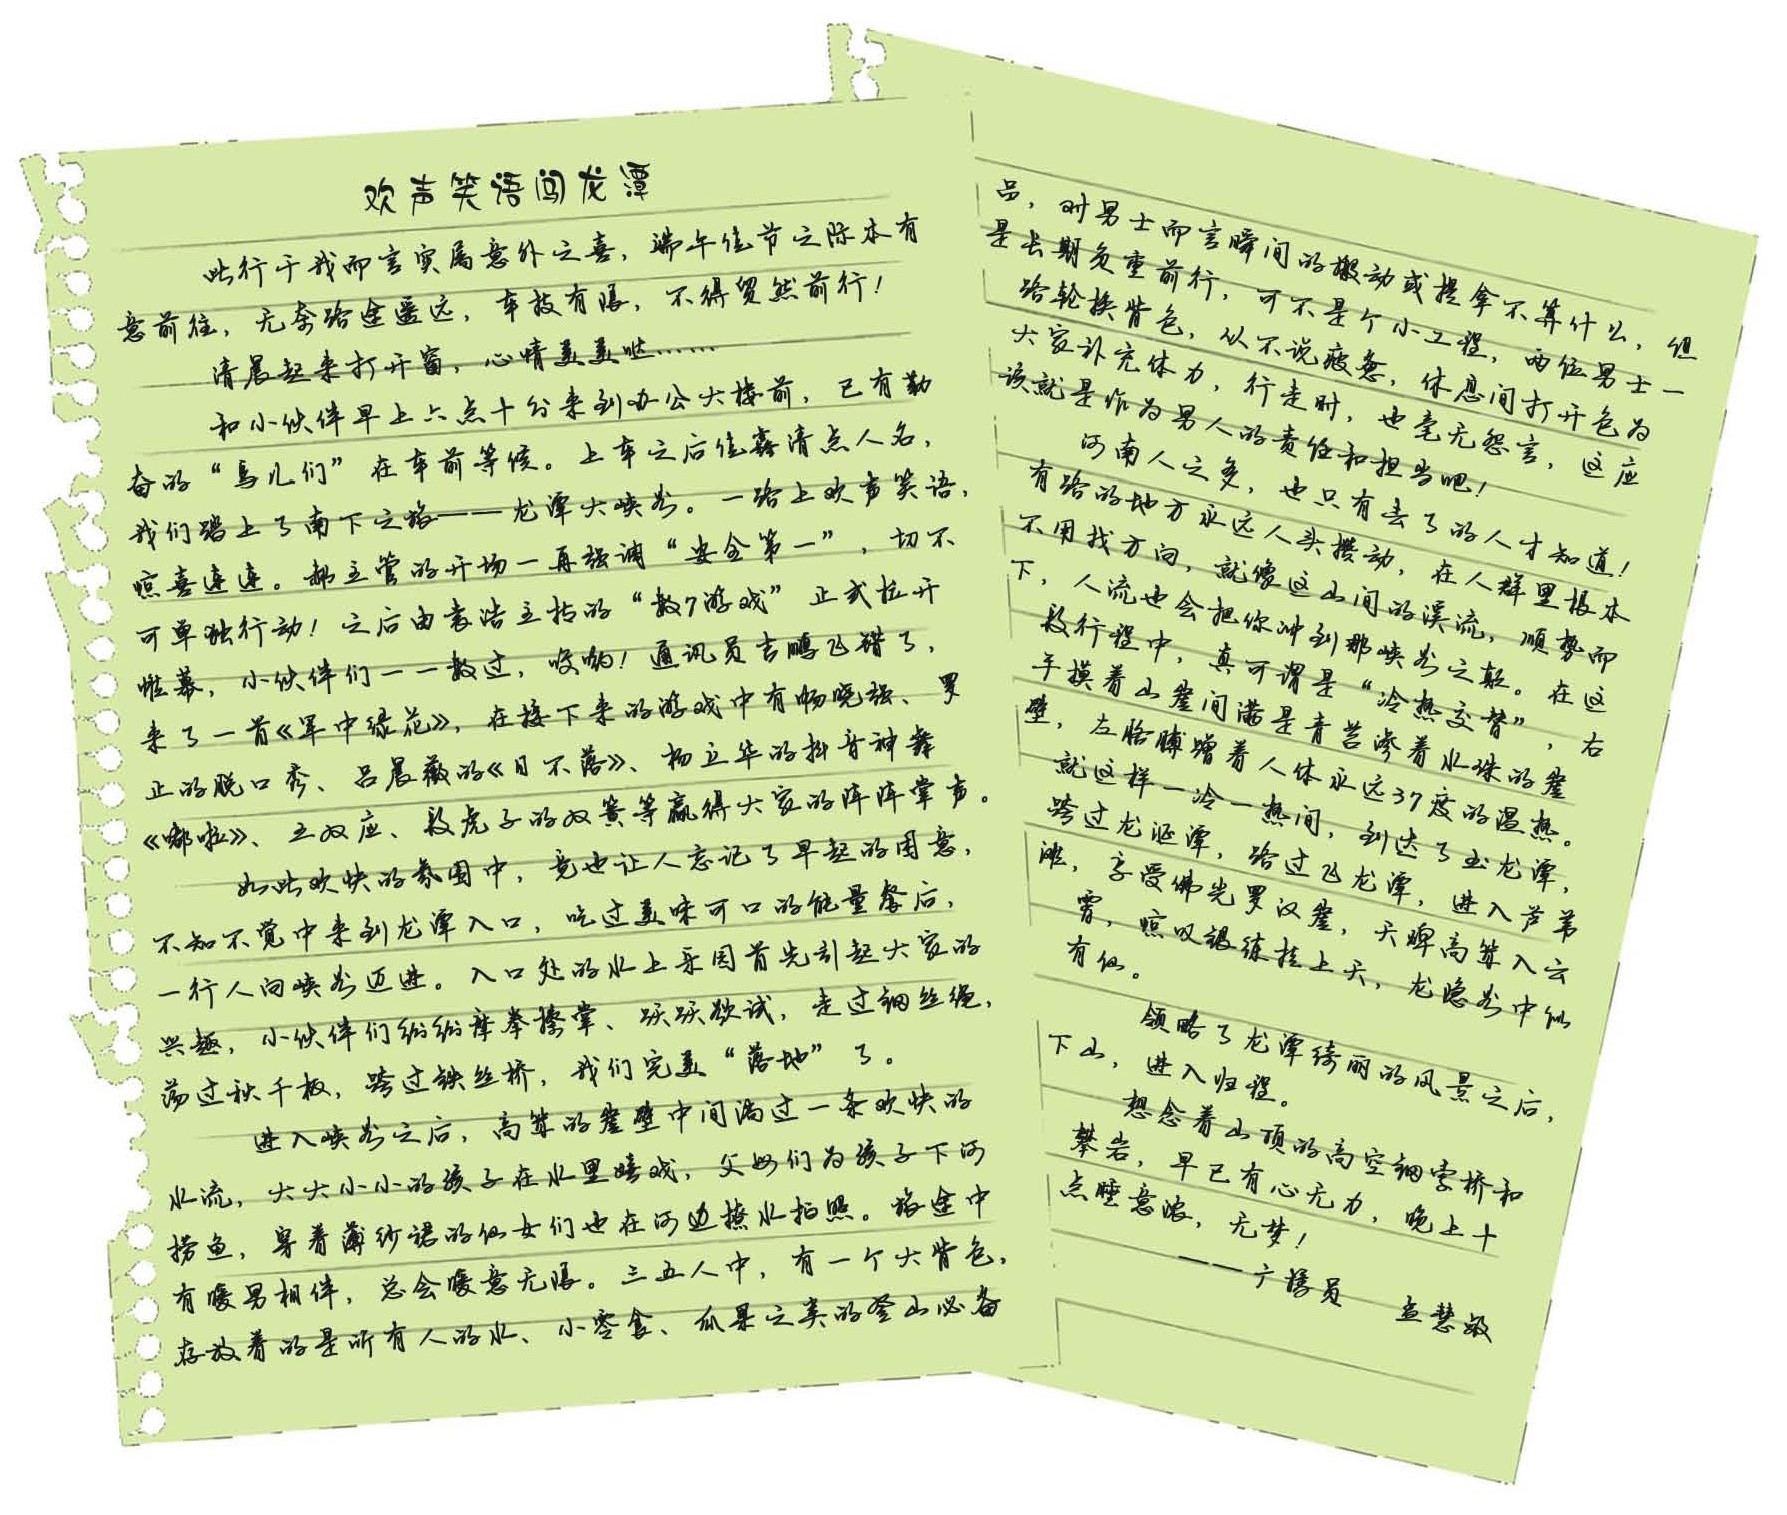 欢声笑语闯龙潭
此行于我而言实属意外之喜，端午佳节之际本有
意前往，无奈路途遥远，车技有限，不得贸然前行！
清晨起来打开窗，心情美美哒……
和小伙伴早上六点十分来到办公大楼前，已有勤
奋的“鸟儿们”在车前等候。上车之后佳鑫清点人名，
我们踏上了南下之路——龙潭大峡谷。一路上欢声笑语，
惊喜连连。郝主管的开场一再强调“安全第一”，切不
可单独行动！之后由袁浩主持的“数7游戏”正式拉开
帷幕，小伙伴们一一数过，哎哟！通讯员吉鹏飞错了，
来了一首《军中绿花》，在接下来的游戏中有畅晓强、罗
正的脱口秀、吕晨薇的《日不落》、杨立华的抖音神舞
《嘟啦》、王双应、段虎子的双簧等赢得大家的阵阵掌声。
如此欢快的氛围中，竟也让人忘记了早起的困意，
不知不觉中来到龙潭入口，吃过美味可口的能量餐后，
一行人向峡谷迈进。入口处的水上乐园首先引起大家的
兴趣，小伙伴们纷纷摩拳擦掌、跃跃欲试，走过钢丝绳，
荡过秋千板，跨过铁丝桥，我们完美“落地”了。
进入峡谷之后，高耸的崖壁中间淌过一条欢快的
水流，大大小小的孩子在水里嬉戏，父母们为孩子下河
捞鱼，穿着薄纱裙的仙女们也在河边撩水拍照。旅途中
有暖男相伴，总会暖意无限。三五人中，有一个大背包，
存放着的是所有人的水、小零食、瓜果之类的登山必备
品，对男士而言瞬间的搬动或提拿不算什么，但
是长期负重前行，可不是个小工程，两位男士一
路轮换背包，从不说疲惫，休息间打开包为
大家补充体力，行走时，也毫无怨言，这应
该就是作为男人的责任和担当吧！
河南人之多，也只有去了的人才知道！
有路的地方永远人头攒动，在人群里根本
不用找方向，就像这山间的溪流，顺势而
下，人流也会把你冲到那峡谷之巅。在这
段行程中，真可谓是“冷热交替”，右
手摸着山崖间满是青苔渗着水珠的崖
壁，左胳膊蹭着人体永远37度的温热。
就这样一冷一热间，到达了五龙潭，
跨过龙涎潭，路过飞龙潭，进入芦苇
滩，享受佛光罗汉崖，天碑高耸入云
霄，惊叹银练挂上天，龙隐谷中仙
有仙。
领略了龙潭绮丽的风景之后，
下山，进入归程。
想念着山顶的高空钢索桥和
攀岩，早已有心无力，晚上十
点睡意浓，无梦！
——广播员 孟慧敏